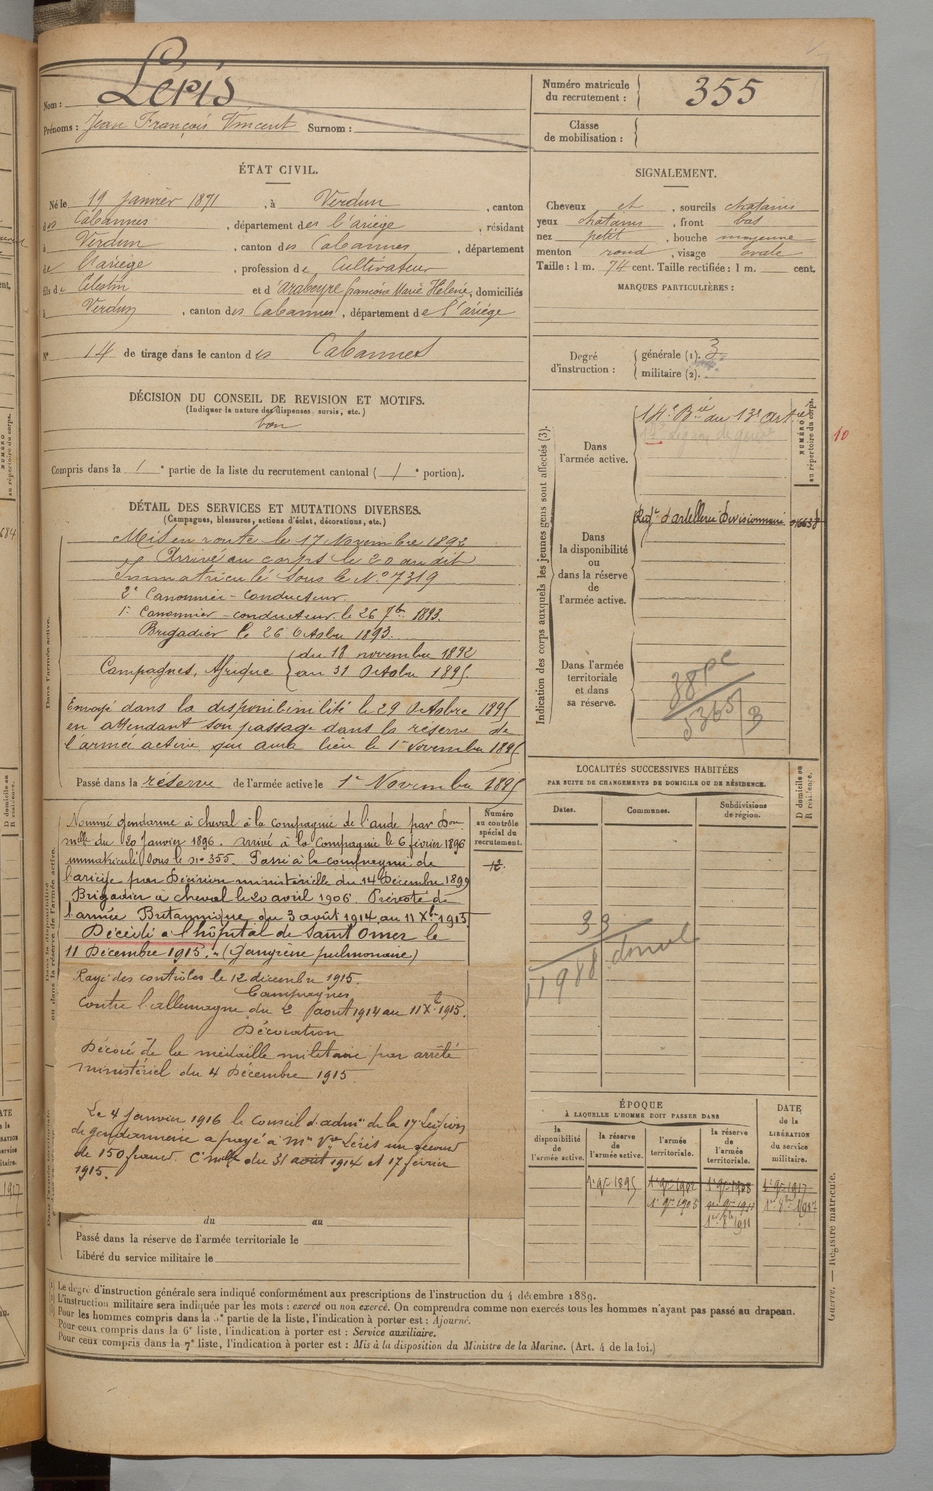 Nom : Léris
Prénoms : Jean François Vincent Surnom :
Numéro matricule du recrutement : 355
Classe de mobilisation :
ÉTAT CIVIL.
Né le 19 janvier 1871, à Verdun, canton
des Cabannes, département de l'ariège, résidant
à Verdun, canton des Cabannes, département
de l'ariège, profession de Cultivateur
fils de Célestin et d'Arabeyre françoise Marie Hélène, domiciliés
à Verdun, canton des Cabannes, département de l'ariège
N° 14 de tirage dans le canton des Cabannes
SIGNALEMENT.
Cheveux et, sourcils chatains
yeux chatains, front bas
nez petit, bouche moyenne
menton rond, visage ovale
Taille : 1 m. 74 cent. Taille rectifiée : 1 m. cent.
MARQUES PARTICULIÈRES :
Degré d'instruction :
générale (1). 3
militaire (2).
DÉCISION DU CONSEIL DE REVISION ET MOTIFS.
(Indiquer la nature des dispenses, sursis, etc.)
bon
Compris dans la 1e partie de la liste du recrutement cantonal (1e portion).
DÉTAIL DES SERVICES ET MUTATIONS DIVERSES.
(Campagnes, blessures, actions d'éclat, décorations, etc.)
Dans l'armée active.
Mis en route le 17 Novembre 1892
Arrivé au corps le 20 au dit
Immatriculé sous le N° 7319
2e Canonnier-conducteur
1er Canonnier-conducteur le 26 7bre 1893.
Brigadier le 26 Octobre 1893.
Campagnes, Afrique du 18 novembre 1892
au 31 Octobre 1895
Envoyé dans la disponibilité le 29 Octobre 1895
en attendant son passage dans la réserve de
l'armée active, qui aura lieu le 1er Novembre 1895
Passé dans la réserve de l'armée active le 1er Novembre 1895
Indication des corps auxquels les jeunes gens sont affectés (3).
NUMÉRO au répertoire du corps.
Dans l'armée active.
14e Bie au 13e Artie
10
Dans la disponibilité ou dans la réserve de l'armée active.
Regt d'artillerie Divisionnaire
Dans l'armée territoriale et dans sa réserve.
5365
LOCALITÉS SUCCESSIVES HABITÉES
PAR SUITE DE CHANGEMENTS DE DOMICILE OU DE RÉSIDENCE.
Dates. Communes. Subdivisions de région. D domicile ou R résidence.
33
1988
Numéro au contrôle spécial du recrutement.
12
Nommé gendarme à cheval à la Compagnie de l'aude par Don
mlle du 20 Janvier 1896. arrivé à la Compagnie le 6 février 1896
immatriculé sous le n° 355. Passé à la compagnie de
l'ariège par Décision ministérielle du 14 Décembre 1899
Brigadier à cheval le 20 avril 1906. Prévôté de
l'armée Britannique du 3 août 1914 au 11 Xbre 1915
Décédé à l'hôpital de Saint Omer le
11 Décembre 1915. (Gangrène pulmonaire)
Rayé des contrôles le 12 décembre 1915.
Campagnes
Contre l'allemagne du 2 août 1914 au 11 Xbre 1915.
Décoration
Décoré de la médaille militaire par arrêté
ministériel du 4 Décembre 1915
Le 4 Janvier 1916 le Conseil d'admon de la 17e Légion
de gendarmerie a payé à Me Vve Léris un secours
de 150 francs. Clle du 31 août 1914 et 17 février
1915.
du au
Passé dans la réserve de l'armée territoriale le
Libéré du service militaire le
ÉPOQUE
À LAQUELLE L'HOMME DOIT PASSER DANS
la disponibilité de l'armée active. la réserve de l'armée active. l'armée territoriale. la réserve de l'armée territoriale. DATE de la LIBÉRATION du service militaire.
1er 9bre 1895 1er 9bre 1902 1er 9bre 1908 1er 9bre 1917
1er 9bre 1905
1er 8bre 1911 1er 8bre 1917
(1) Le degré d'instruction générale sera indiqué conformément aux prescriptions de l'instruction du 4 décembre 1889.
(2) L'instruction militaire sera indiquée par les mots : exercé ou non exercé. On comprendra comme non exercés tous les hommes n'ayant pas passé au drapeau.
(3) Pour les hommes compris dans la 5e partie de la liste, l'indication à porter est : Ajourné.
Pour ceux compris dans la 6e liste, l'indication à porter est : Service auxiliaire.
Pour ceux compris dans la 7e liste, l'indication à porter est : Mis à la disposition du Ministre de la Marine. (Art. 4 de la loi.)
Guerre. — Registre matricule.